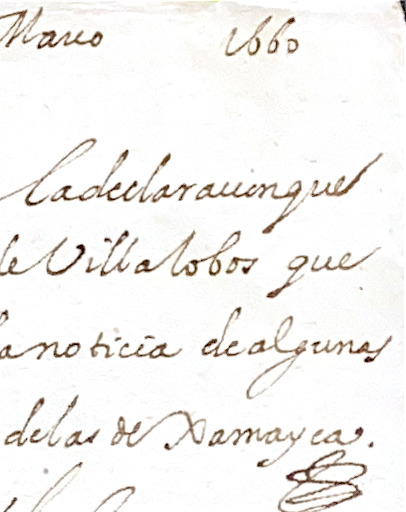 Março 1660
la declaraçion que
de Villalobos que
la noticia de algunas
de las de Xamayca.